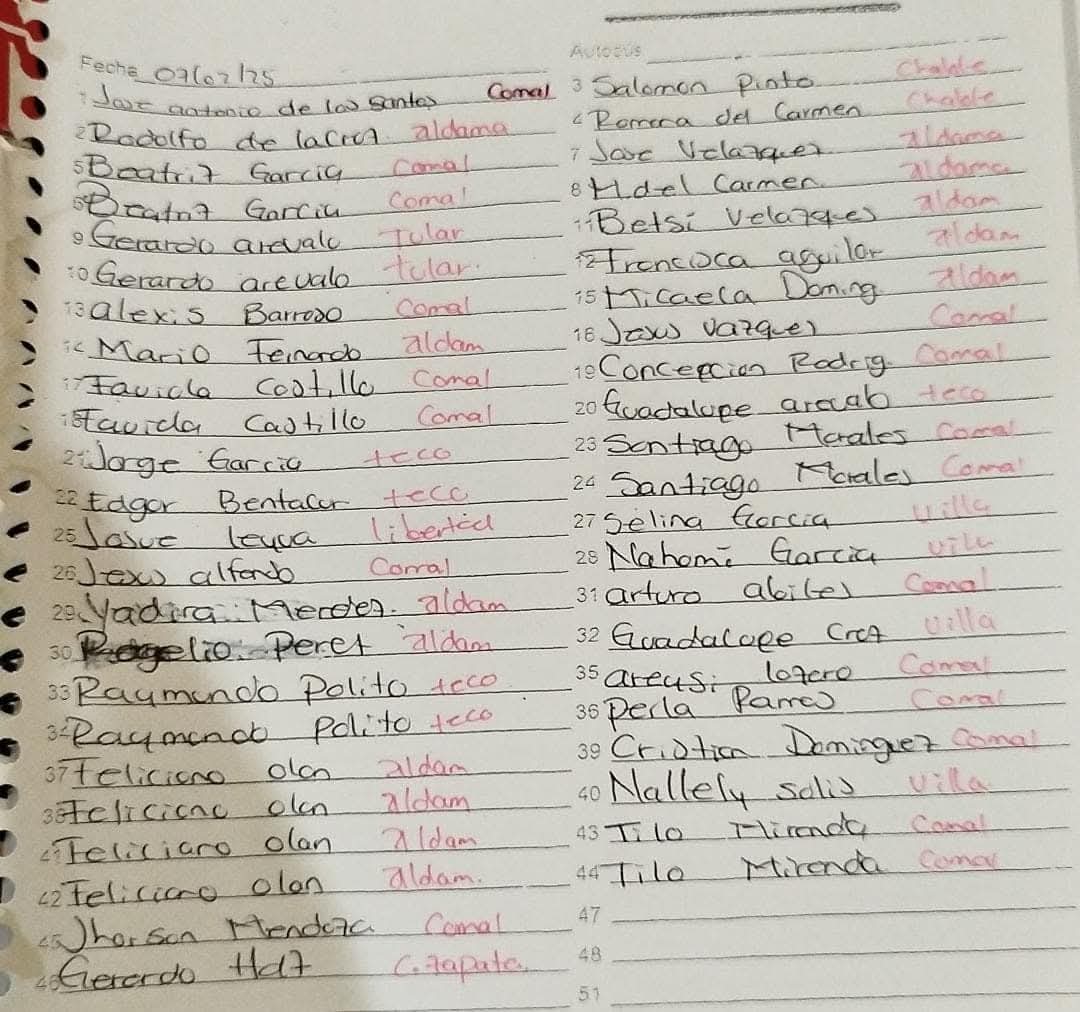 Fecha 07/02/25
Autobús
1 Jose antonio de los santos Comal
2 Rodolfo de la Croz aldama
5 Beatriz Garcia Comal
6 Beatriz Garcia Comal
9 Gerardo arevalo Tular
10 Gerardo arevalo tular.
13 alexis Barroso Comal
14 Mario Fernando aldam
17 Favida Castillo Comal
18 Favida Castillo Comal
21 Jorge Garcia teco
22 Edgar Bentacor teco
25 Josue leyva libertad
26 Jesus alfondo Comal
29 Yadira Mendez. aldam
30 Rogelio Perez aldam
33 Raymundo Polito teco
34 Raymundo Polito teco
37 Feliciano olan aldam
38 Feliciano olan aldam
41 Feliciano olan aldam
42 Feliciano olan aldam.
45 Jhorson Mendoza Comal
46 Gerardo Hdz C. zapata
3 Salomon Pinto Chalate
4 Romera del Carmen Chalate
7 Jose Velazquez aldama
8 H del Carmen aldama
11 Betsi Velazques aldam
12 Francisca aguilar aldam
15 Micaela Doming aldam
16 Jesus Vazquez Comal
19 Concepcion Rodrig. Comal
20 Guadalupe arevalo teco
23 Santiago Morales Comal
24 Santiago Morales Comal
27 Selina Garcia Villa
28 Nahomi Garcia Villa
31 arturo abiles Comal
32 Guadalupe Croz Villa
35 areysi lozero Comal
36 Perla Parres Comal
39 Cristian Dominguez Comal
40 Nallely solis Villa
43 Tilo Miranda Comal
44 Tilo Miranda Comal
47
48
51